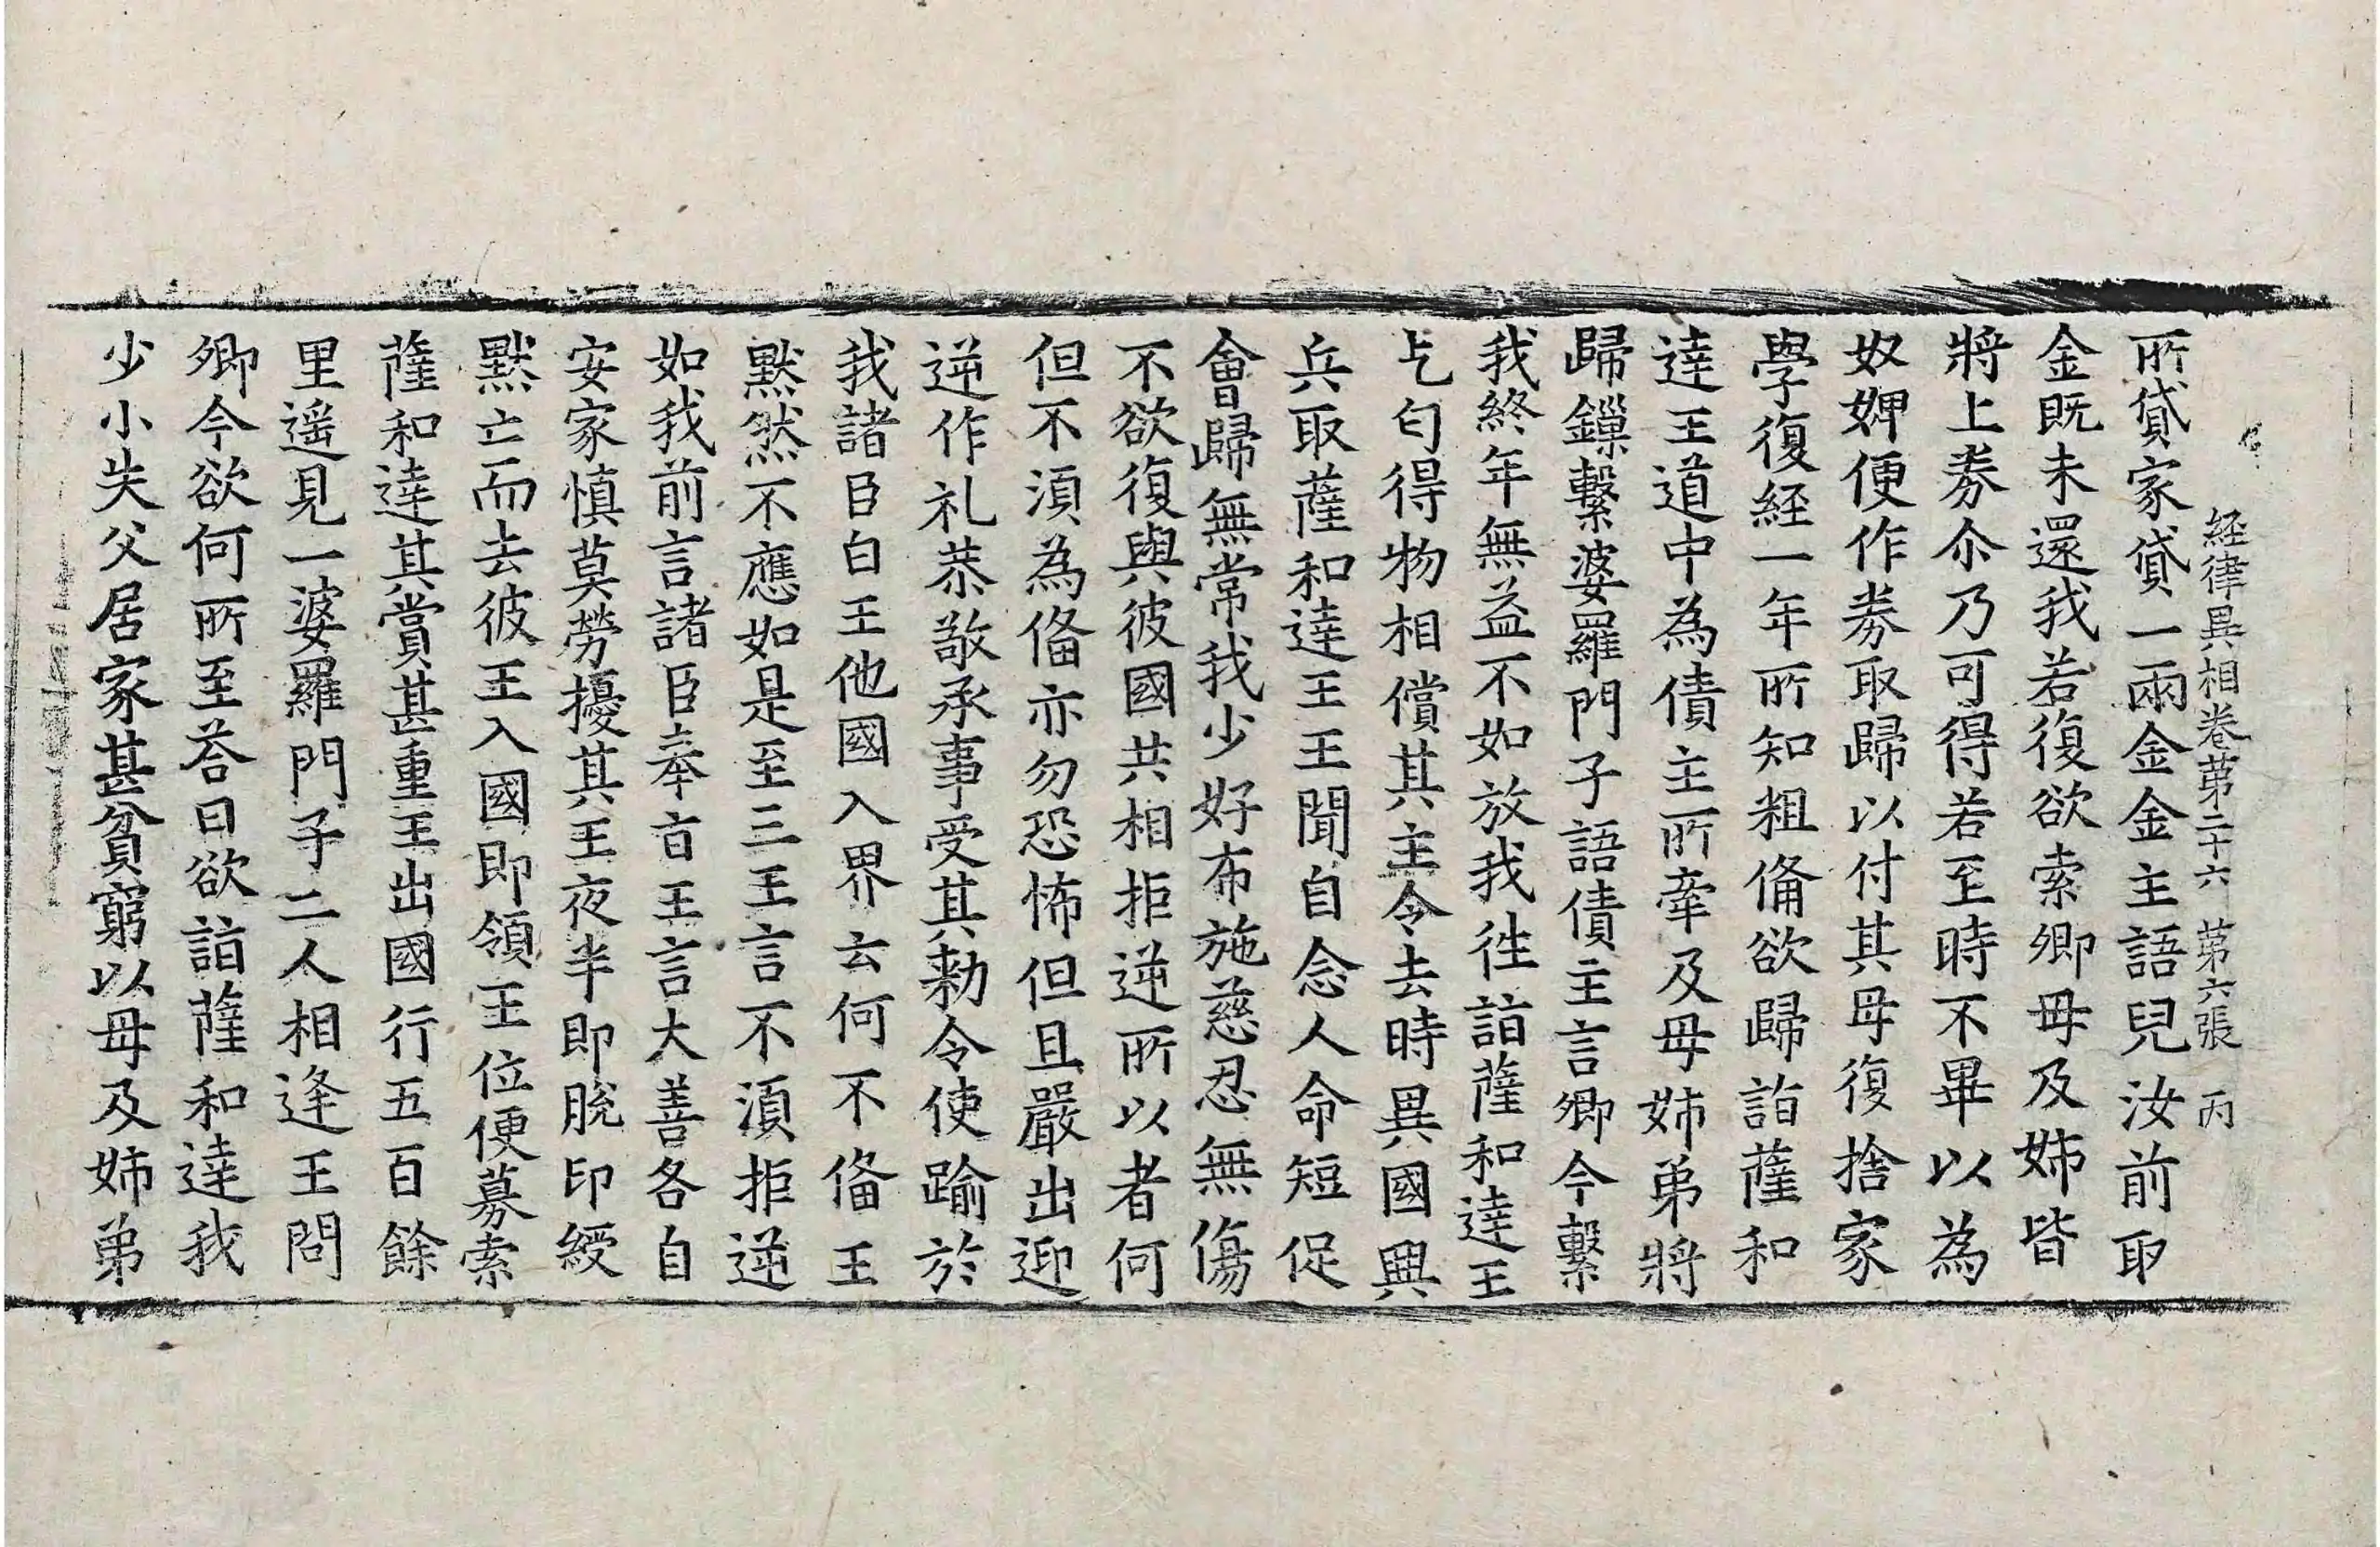 経律異相卷苐二十六 苐六張 丙
所貸家貸一兩金金主語兒汝前取
金既未還我若復欲索卿母及姊皆
將上券尒乃可得若至時不畢以為
奴婢便作券取歸以付其母復捨家
學復經一年所知粗俻欲歸詣薩和
達王道中為債主所牽及母姊弟將
歸鏁繫婆羅門子語債主言卿今繫
我終年無益不如放我往詣薩和達王
乞匄得物相償其主令去時異國興
兵取薩和達王王聞自念人命短促
會歸無常我少好布施慈忍無傷
不欲復與彼國共相拒逆所以者何
但不湏為俻亦勿恐怖但且嚴出迎
逆作礼恭敬承事受其勑令使踰於
我諸臣白王他國入界云何不俻王
黙然不應如是至三王言不湏拒逆
如我前言諸臣奉㫖王言大善各自
安家慎莫勞擾其王夜半即脫印綬
黙亡而去彼王入國即領王位便募索
薩和達其賞甚重王出國行五百餘
里遥見一婆羅門子二人相逢王問
卿今欲何所至荅曰欲詣薩和達我
少小失父居家甚貧窮以母及姊弟